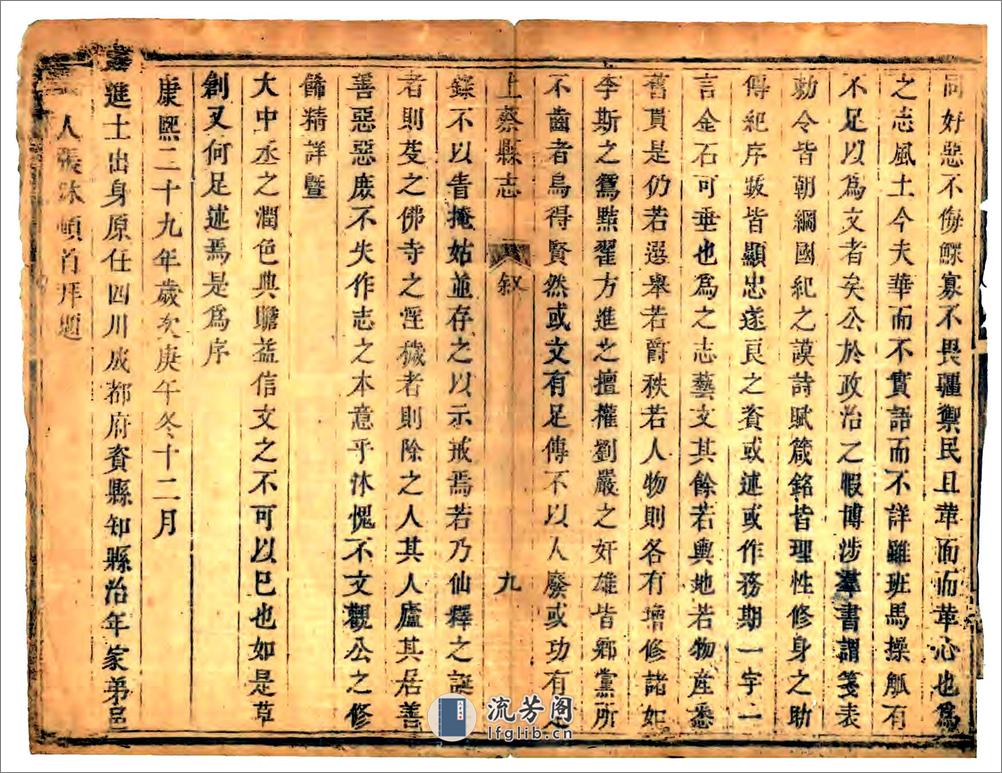 同好惡不侮鰥寡不畏疆禦民且革面而革心也爲
之志風土今夫華而不實語而不詳雖班馬操觚有
不足以爲文者矣公於政治之暇博涉羣書謂箋表
勅令皆朝綱國紀之謨詩賦箴銘皆理性修身之助
傳紀序跋皆顯忠遂良之資或述或作務期一字一
言金石可垂也爲之志藝文其餘若輿地若物産悉
舊貫是仍若選舉若爵秩若人物則各有增修諸如
李斯之爲黠翟方進之擅權劉嚴之奸雄皆鄉黨所
不齒者烏得賢然或文有足傳不以人廢或功有
上蔡縣志 叙 九
錄不以眚掩姑並存之以示戒焉若乃仙釋之誕
者則芟之佛寺之淫穢者則除之人其人廬其居善
善惡惡庶不失作志之本意乎沐愧不文觀公之修
餙精詳暨
大中丞之潤色典贍益信文之不可以已也如是草
創又何足述焉是爲序
康熙二十九年歲次庚午冬十二月
進士出身原任四川成都府資縣知縣治年家弟邑
人張沐頓首拜題
流芳阁
lfglib.cn